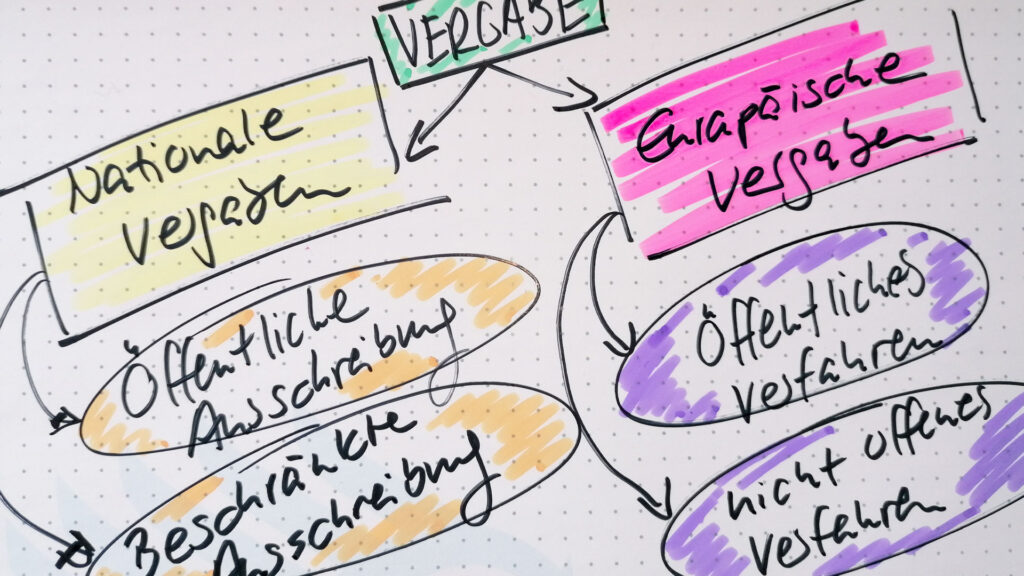 VERGABE
Nationale
Vergaben
Europäische
Vergaben
Öffentliche
Ausschreibung
Beschränkte
Ausschreibung
Öffentliches
Verfahren
nicht offenes
Verfahren